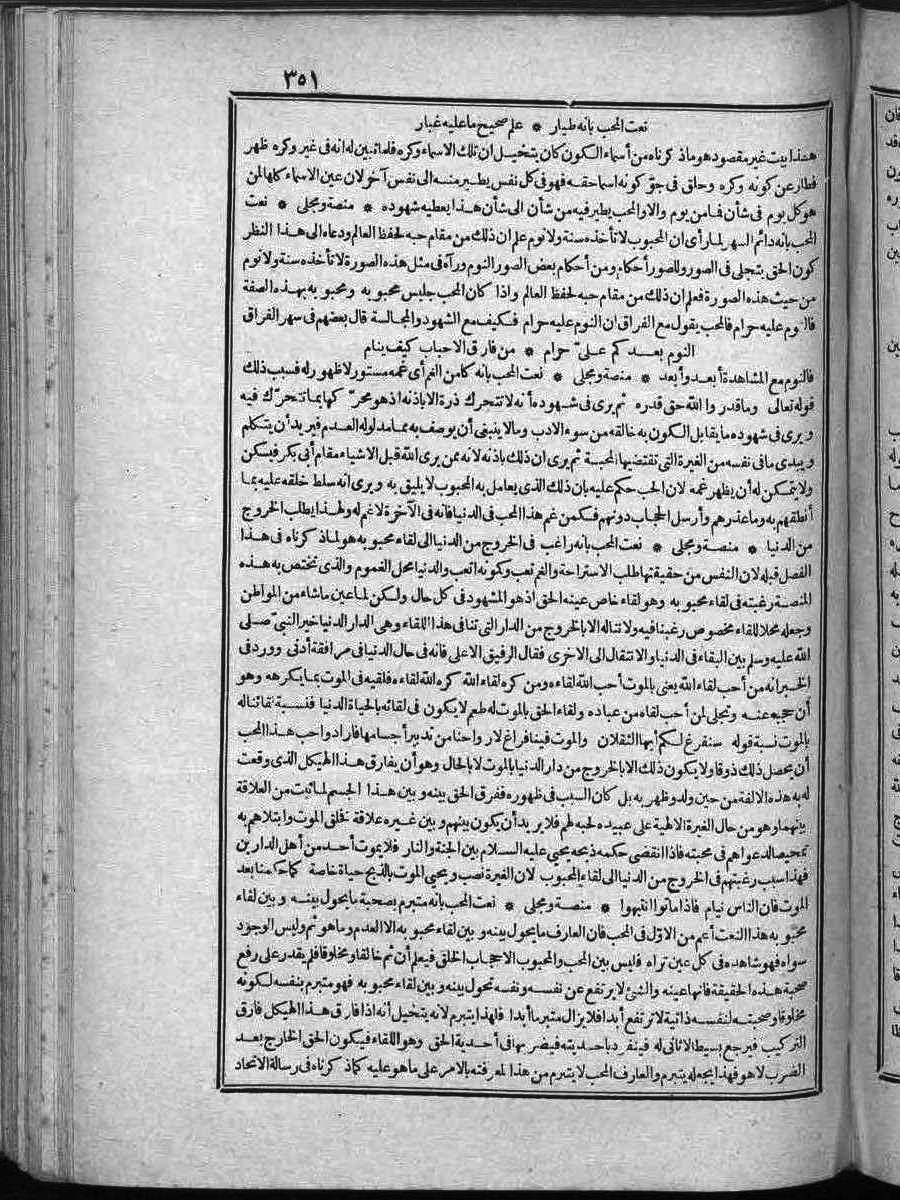 ٣٥١
نعت المحب بانه طيار * علم صحيح ما عليه غبار
هذا بيت غير مقصود هو ماذكرناه من أسماء الكون كان يتخيل ان تلك الاسماء وكره فلما تبين له انه فى غير وكره ظهر
فطار عن كونه وكره وحلق فى جوّ كونه اسما حقه فهو فى كل نفس يطير منه الى نفس آخر لان عين الاسماء كلها لمن
هو كل يوم فى شأن فما من يوم والا والمحب يطير فيه من شأن الى شأن هذا يعطيه شهوده * منصة ومجلى * نعت
المحب بانه دائم السهر لما رأى ان المحبوب لا تأخذه سنة ولا نوم علم ان ذلك من مقام حبه لحفظ العالم ودعاه الى هذا النظر
كون الحق يتجلى فى الصور وللصور أحكام ومن أحكام بعض الصور النوم ورآه فى مثل هذه الصورة لا تأخذه سنة ولا نوم
من حيث هذه الصورة فعلم ان ذلك من مقام حبه لحفظ العالم واذا كان المحب جليس محبوبه ومحبوبه بهذه الصفة
فالنوم عليه حرام فالمحب يقول مع الفراق ان النوم عليه حرام فكيف مع الشهود والمجالسة قال بعضهم فى سهر الفراق
النوم بعدكم علىّ حرام * من فارق الاحباب كيف ينام
فالنوم مع المشاهدة أبعد وأبعد * منصة ومجلى * نعت المحب بانه كامن الغم أى غمه مستور لا ظهور له فسبب ذلك
قوله تعالى وما قدروا الله حق قدره ثم يرى فى شهوده أنه لا تتحرك ذرة الا باذنه اذ هو محرّكها بما تتحرّك فيه
ويرى فى شهوده ما يقابل الكون به خالقه من سوء الادب وما لا ينبغى أن يوصف به مما مدلوله العدم فيريد أن يتكلم
ويبدى ما فى نفسه من الغيرة التى تقتضيها المحبة ثم يرى ان ذلك باذنه لانه ممن يرى الله قبل الاشياء مقام أبى بكر فيسكن
ولا يتمكن له أن يظهر غمه لان الحب حكم عليه بان ذلك الذى يعامل به المحبوب لا يليق به ويرى انه سلط خلقه عليه بما
أنطقهم به وما عذرهم وأرسل الحجاب دونهم فكمن غم هذا المحب فى الدنيا فانه فى الآخرة لا غم له ولهذا يطلب الخروج
من الدنيا * منصة ومجلى * نعت المحب بانه راغب فى الخروج من الدنيا الى لقاء محبوبه هو لماذكرناه فى هذا
الفصل قبله لان النفس من حقيقتها طلب الاستراحة والغم تعب وكونه أتعب والدنيا محل الغموم والذى تختص به هذه
المنصة رغبته فى لقاء محبوبه وهو لقاء خاص عينه الحق اذ هو المشهود فى كل حال ولكن لما عين ماشاء من المواطن
وجعله محلا للقاء مخصوص رغبنا فيه ولا نناله الا بالخروج من الدار التى تنافى هذا اللقاء وهى الدار الدنيا خير النبىّ صلى
الله عليه وسلم بين البقاء فى الدنيا والانتقال الى الاخرى فقال الرفيق الاعلى فانه فى حال الدنيا فى مرافقة أدنى وورد فى
الخبر انه من أحب لقاء الله يعنى بالموت أحب الله لقاءه ومن كره لقاء الله كره الله لقاءه فلقيه فى الموت بما يكرهه وهو
أن حجبه عنه وتجلى لمن أحب لقاءه من عباده ولقاء الحق بالموت له طعم لا يكون فى لقائه بالحياة الدنيا فنسبة لقائنا له
بالموت نسبة قوله سنفرغ لكم أيها الثقلان والموت فينا فراغ لارواحنا من تدبير أجسامها فاراد واحب هذا المحب
أن يحصل ذلك ذوقا ولا يكون ذلك الا بالخروج من دار الدنيا بالموت لا بالحال وهو أن يفارق هذا الهيكل الذى وقعت
له به هذه الالفة من حين ولد وظهر به بل كان السبب فى ظهوره ففرق الحق بينه وبين هذا الجسم لما ثبت من العلاقة
بينهما وهو من حال الغيرة الالهية على عبيده لحبه لهم فلا يريد أن يكون بينهم وبين غيره علاقة فخلق الموت وابتلاهم به
تمحيصا لدعواهم فى محبته فاذا انقضى حكمه ذبحه يحيى عليه السلام بين الجنة والنار فلا يموت أحد من أهل الدارين
فهذا سبب رغبتهم فى الخروج من الدنيا الى لقاء المحبوب لان الغيرة نصب ويحيى الموت بالذبح حياة خاصة كما حكمنا بعد
الموت فان الناس نيام فاذا ماتوا انتبهوا * منصة ومجلى * نعت المحب بانه متبرم بصحبة ما يحول بينه وبين لقاء
محبوبه هذا النعت أعم من الاوّل فى المحب فان العارف ما يحول بينه وبين لقاء محبوبه الا العدم وما هو ثم وليس الوجود
سواه فهو شاهده فى كل عين تراه فليس بين المحب والمحبوب الاحجاب الخلق فيعلم أن ثم خالقا ومخلوقا فلم يقدر على رفع
صحبة هذه الحقيقة فانها عينه والشئ لا يرتفع عن نفسه ونفسه تحول بينه وبين لقاء محبوبه فهو متبرم بنفسه لكونه
مخلوقا وصحبته لنفسه ذاتية لا ترتفع أبدا فلا يزال متبرما أبدا فلهذا يتبرم لانه يتخيل أنه اذا فارق هذا الهيكل فارق
التركيب فيرجع بسيطا لا ثانى له فينفرد باحديته فيضربها فى أحدية الحق وهو اللقاء فيكون الحق الخارج بعد
الضرب لا هو فهذا يجعله يتبرم والعارف المحب لا يتبرم من هذا لمعرفته بالامر على ما هو عليه كماذكرناه فى رسالة الاتحاد